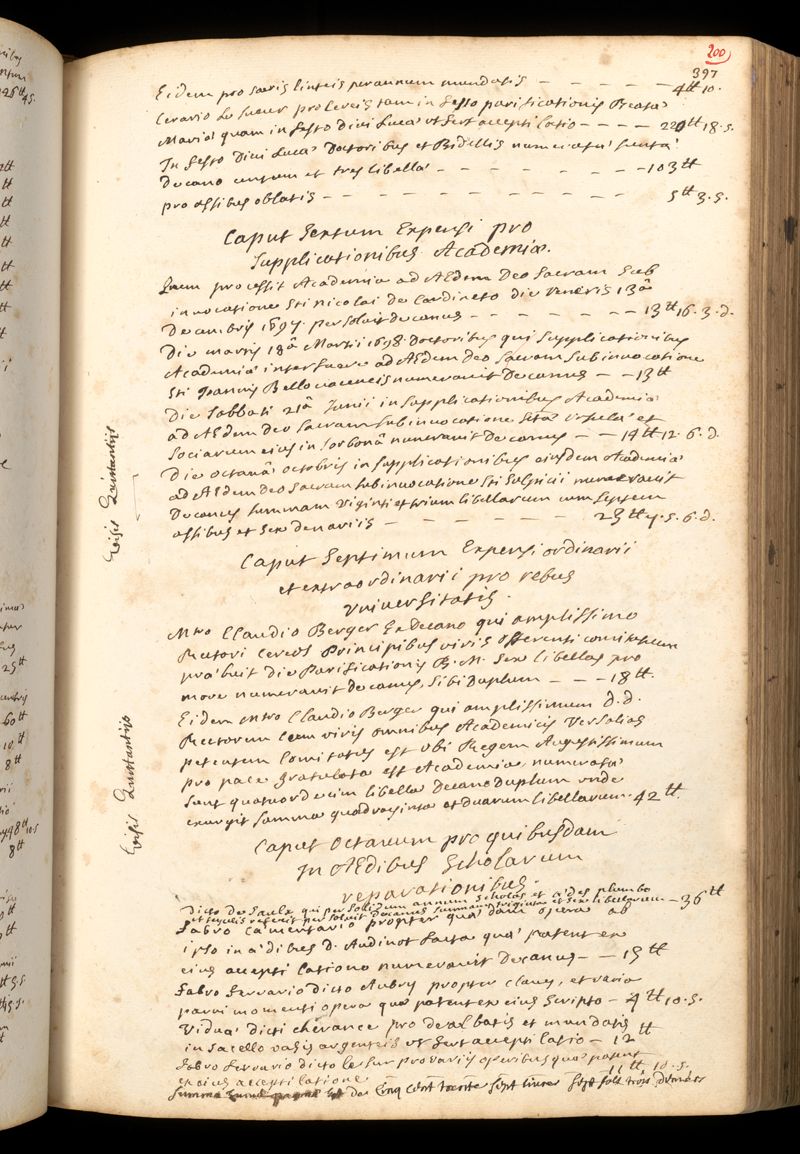 200
397
Eidem pro sacris linteis per annum mundatis - - - - - 4tt 10.
Cerario Le sueur pro cereis tam in festo purificationis Beatæ
Mariæ quam in festo Divi Lucæ ut fert accepti latio - - - - 220tt 18. s.
In festo Divi Lucæ Doctoribus et Bidellis numeratæ sunt a
Decano centum et tres libellæ - - - - - - - 103tt
pro assibus oblatis - - - - - - - - 5tt 3. s.
Caput Sextum Expensi pro
Supplicationibus Academiæ.
Quum processit Academia ad Ædem Deo Sacram Sub
invocatione Sti Nicolai de Cardineto die Veneris 13â
Decembris 1697. persoluit decanus - - - - - 13tt 16. 3. d.
Die martis 18â Martii 1698. Doctoribus qui Supplicationibus
Academiæ interfuere ad Ædem Deo Sacram sub invocatione
Sti Joannis Bellovacensis numeravit Decanus - - 13tt
Die Sabbati 21â Junii in Supplicationibus Academiæ
ad Ædem Deo Sacram sub invocatione Stæ Ursulæ et
Sociarum eius in Sorbonâ numeravit Decanus - - 14tt 12. 6. d.
Die octavâ octobris in Supplicationibus eiusdem Academiæ
ad Ædem Deo Sacram sub invocatione Sti Sulpicii numeravit
Decanus summam Viginti et trium libellarum cum Septem
assibus et Sex denariis - - - - - 23tt 7. s. 6. d.
Caput Septimum Expensi ordinarii
et extraordinarii pro rebus
Universitatis.
Mro Claudio Berger Exdecano qui amplissimo
Rectori Cereos Principibus viris offerenti comitatum
præbuit die Purificationis B. M. Sex libellas pro
more numeravit decanus, sibi duplum - - - 18tt.
Eidem Mro Claudio Berger qui amplissimum D. D.
Rectorem cum viris omnibus Academicis Versalias
petentem Comitatus est ubi Regem Augustissimum
pro pace gratulata est Academia, numeratæ
sunt quatuordecim libellæ Decano duplum unde
exurgit summa quadraginta et duarum libellarum. 42tt.
Caput Octavum pro quibusdam
In Ædibus Scholarum
reparationibus.
Dicto de Saulx qui per solidum annum Scholas et ædes plumbo
et tegulis refecit persoluit Decanus summam triginta et sex libellarum - 36tt
Fabro Cæmentario propter quædam opera ab
ipso in ædibus D. Audinot facta quæ patent ex
eius accepti latione numeravit Decanus - - 15tt
Fabro Ferrario dicto Aubry propter claves, et varia
parvi momenti opera quæ patent ex eius scripto - 4tt 10. s.
Viduæ dicti cherance pro dealbatis et mundatis
in sacello vasis argenteis ut fert accepti latio - 12tt
Fabro ferrario dicto le fur pro variis operibus quæ patent
ex eius accepti latione - 11tt. 10. s.
Summa de Cinq Cent trente sept livres sept sols trois deniers